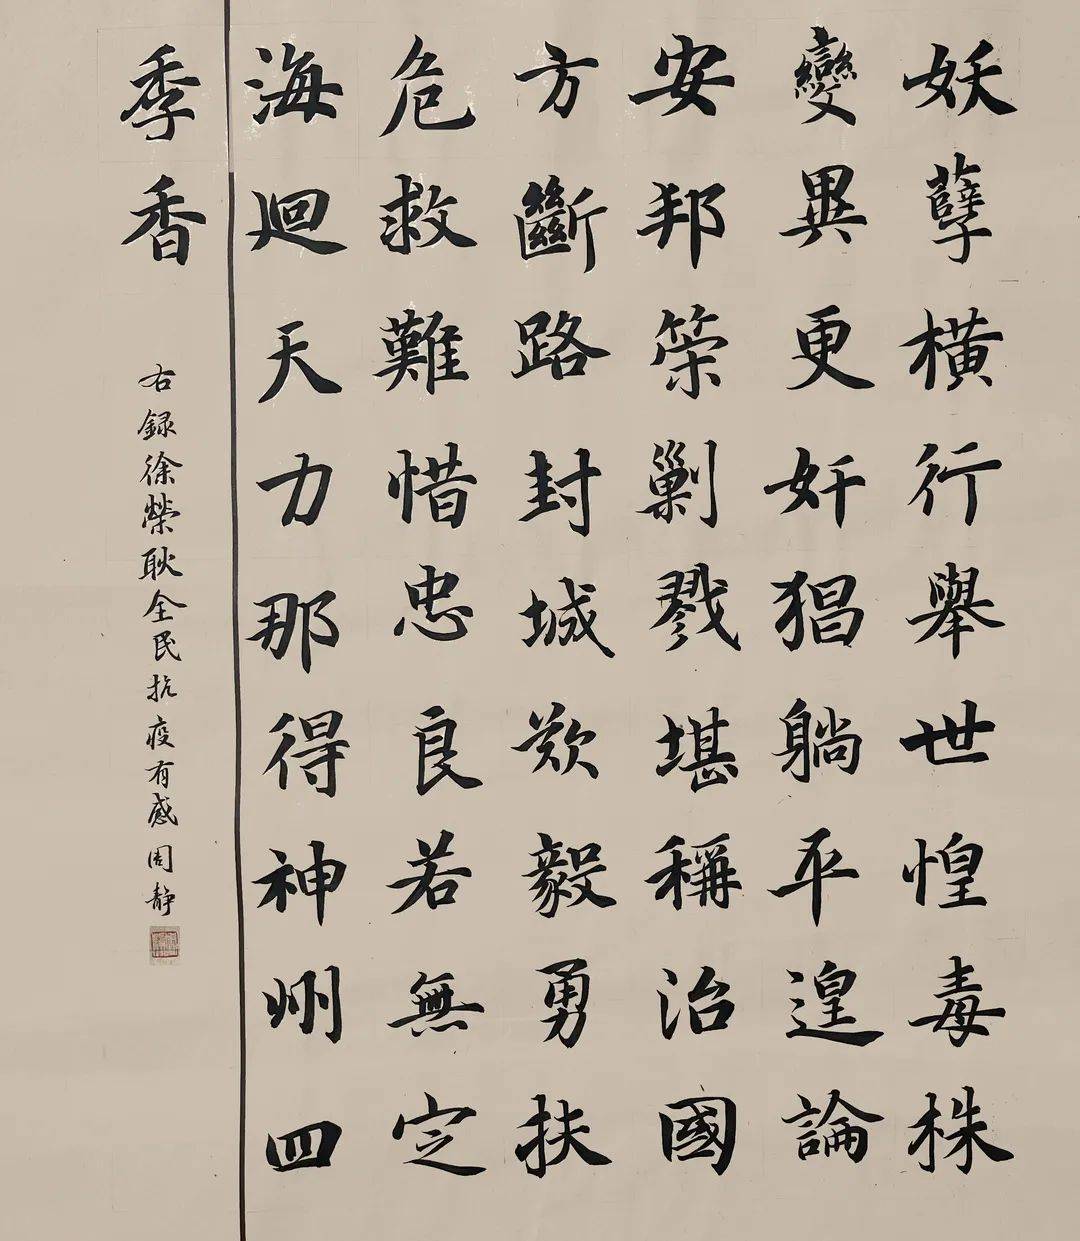 妖孽橫行舉世惶毒株
變異更奸猖躺平遑論
安邦策剿戮堪稱治國
方斷路封城欽毅勇扶
危救難惜忠良若無定
海迴天力那得神州四
季香
右録徐榮耿全民抗疫有感周靜